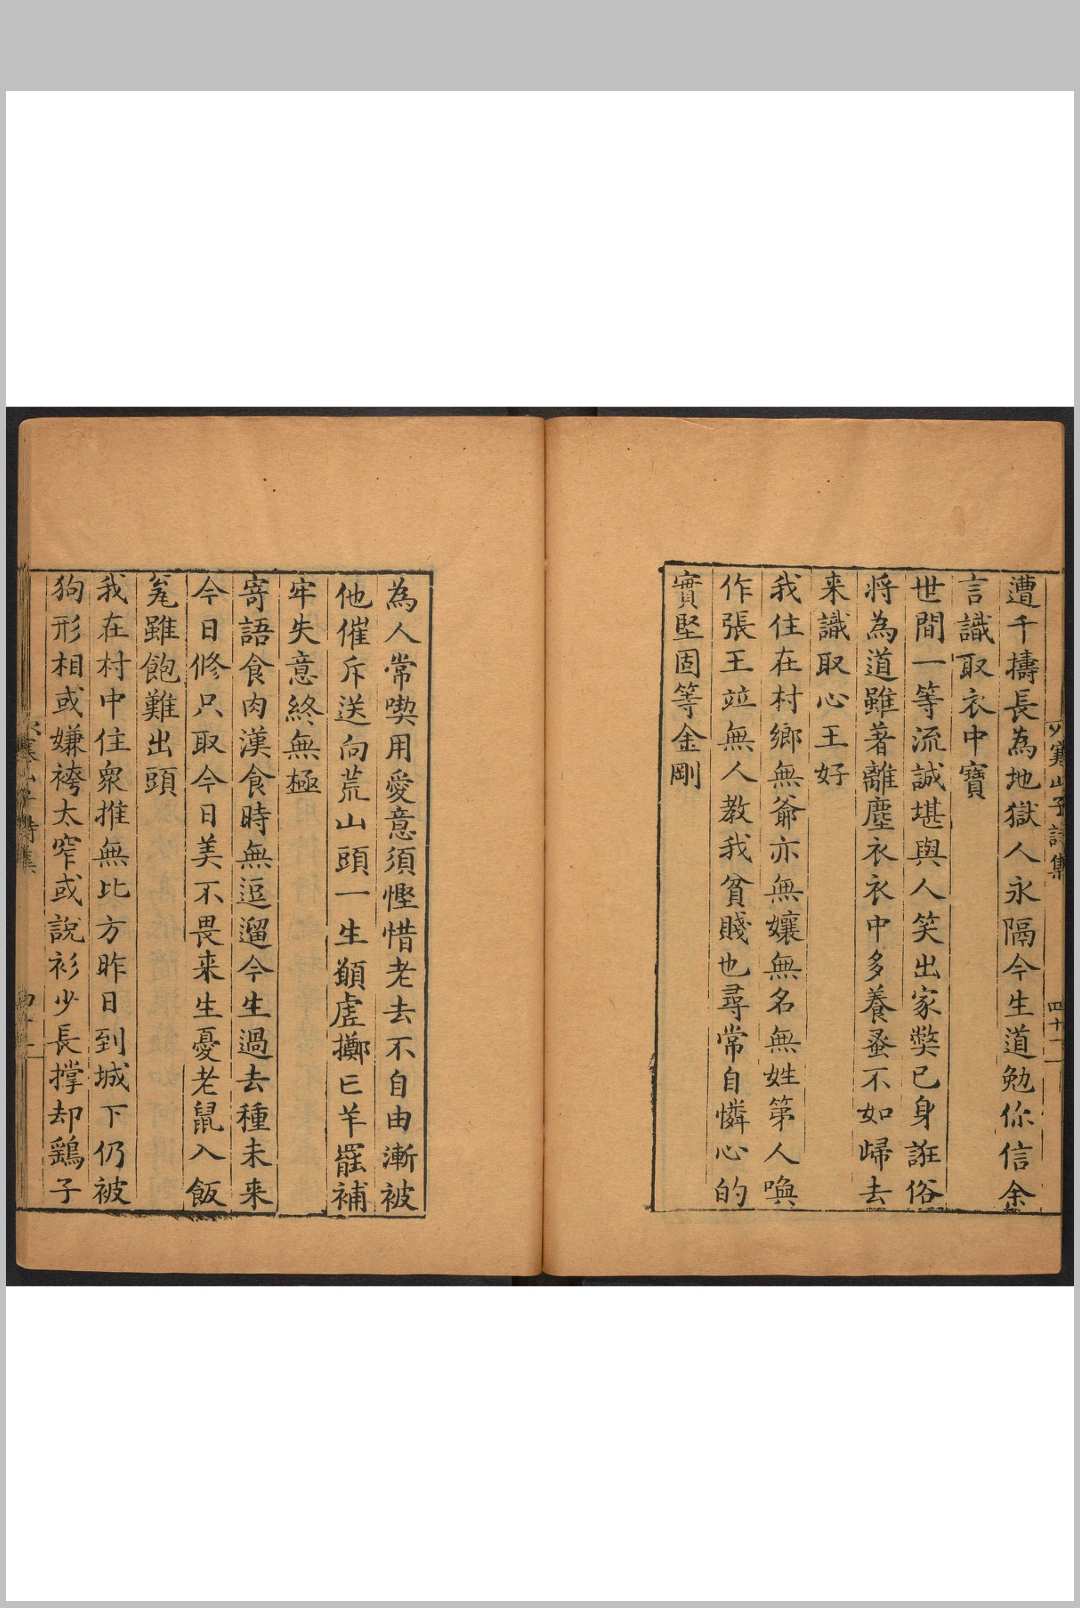 寒山子詩集
四十一
遭千擣長為地獄人永隔今生道勉你信余
言識取衣中寶
世間一等流誠堪與人笑出家獘己身誑俗
將為道雖著離塵衣衣中多養蚤不如歸去
来識取心王好
我住在村鄉無爺亦無孃無名無姓第人喚
作張王竝無人教我貧賤也尋常自憐心的
實堅固等金剛
為人常喫用愛意須慳惜老去不自由漸被
他催斥送向荒山頭一生願虛擲亡羊罷補
牢失意終無極
寄語食肉漢食時無逗遛今生過去種未来
今日修只取今日美不畏来生憂老鼠入飯
瓮雖飽難出頭
我在村中住眾推無比方昨日到城下仍被
狗形相或嫌袴太窄或說衫少長撐却鷂子
寒山子詩集